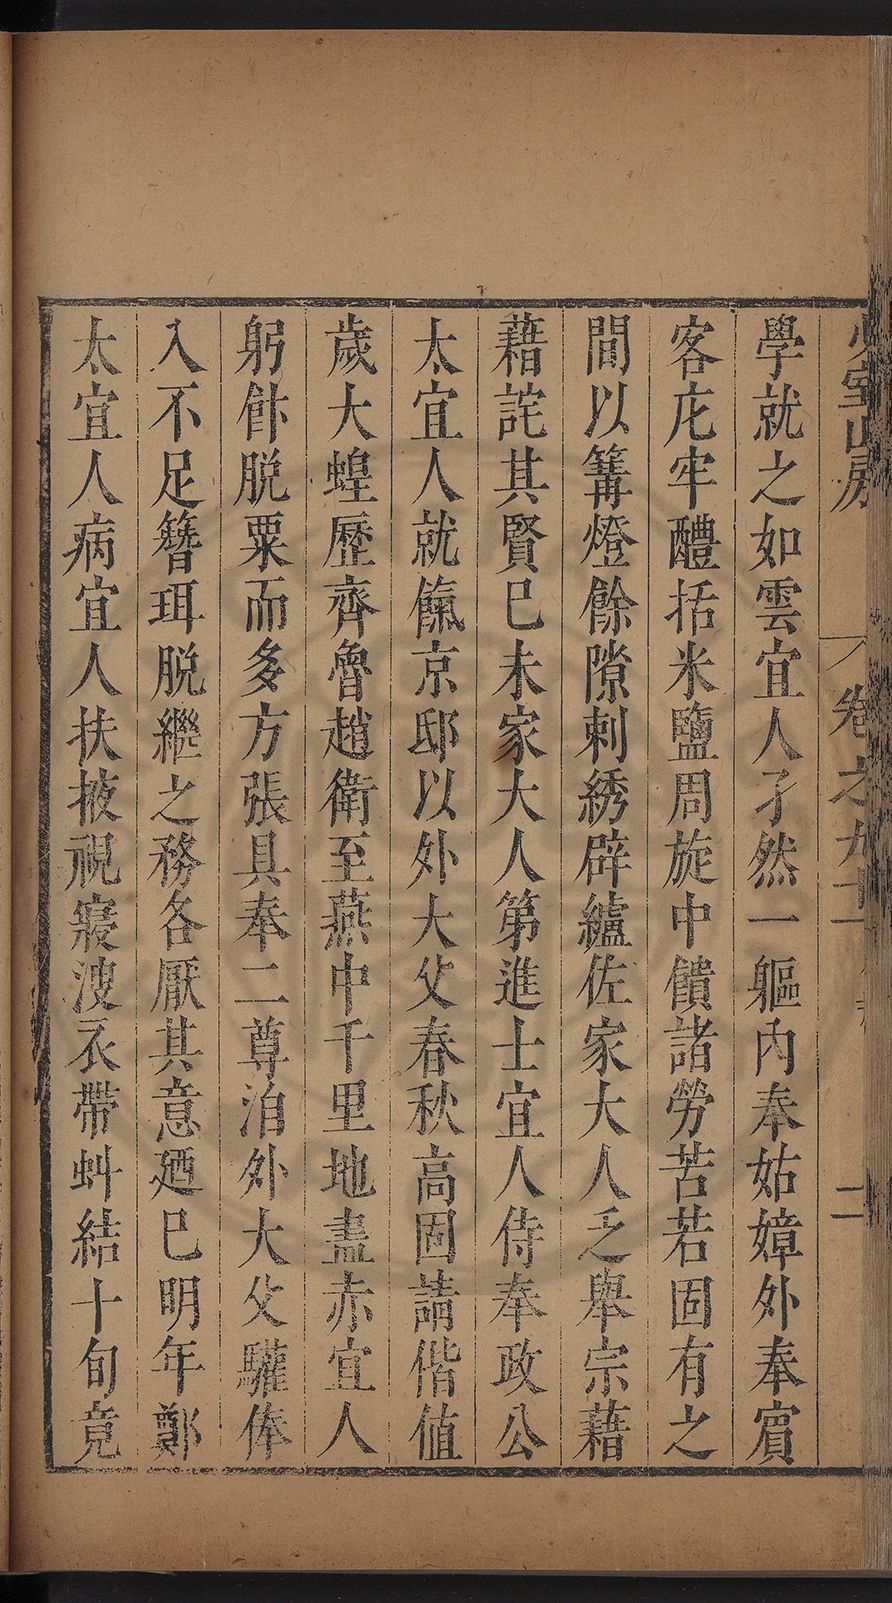 少室山房
卷之九十一
二
學就之如雲宜人孑然一軀內奉姑嫜外奉賓
客庀牢醴括米鹽周旋中饋諸勞苦若固有之
間以篝燈餘隙刺綉辟纑佐家大人乏舉宗藉
藉詫其賢巳未家大人第進士宜人侍奉政公
太宜人就餼京邸以外大父春秋高固請偕值
歲大蝗歷齊魯趙衛至燕中千里地盡赤宜人
躬飰脫粟而多方張具奉二尊洎外大父驩俸
入不足簪珥脫繼之務各厭其意廼巳明年鄭
太宜人病宜人扶掖視寢溲衣帶蚪結十旬竟